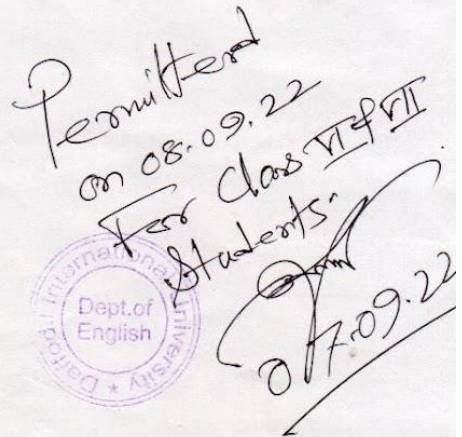 Permitted
on 08.09.22
For Class VI & VII
Students.
07.09.22
Daffodil International University
Dept. of
English